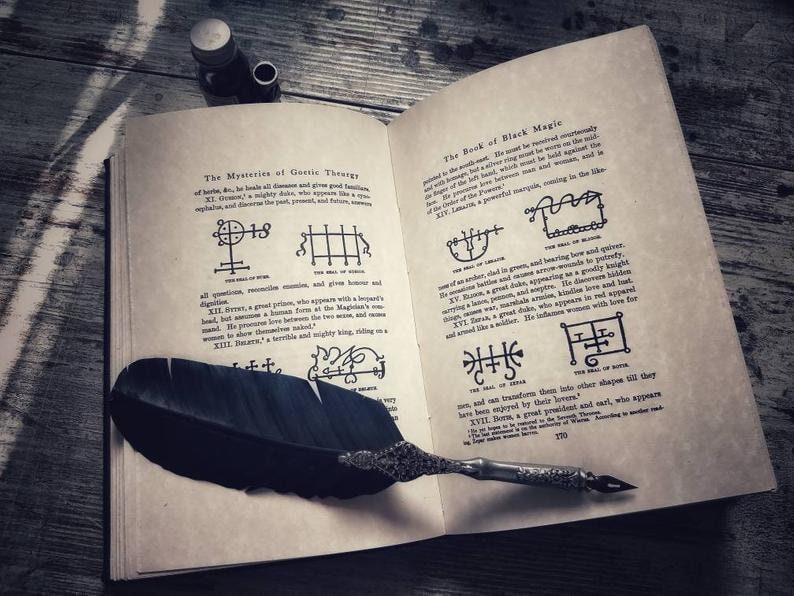 The Mysteries of Goetic Theurgy
of herbs, &c., he heals all diseases and gives good familiars.
XI. Gusion,¹ a mighty duke, who appears like a cyno-
cephalus, and discerns the past, present, and future, answers
THE SEAL OF BUER.
THE SEAL OF GUSION.
all questions, reconciles enemies, and gives honour and
dignities.
XII. Sytry, a great prince, who appears with a leopard's
head, but assumes a human form at the Magician's com-
mand. He procures love between the two sexes, and causes
women to show themselves naked.²
XIII. Beleth,³ a terrible and mighty king, riding on a
OF BELETH.
is very
into
The Book of Black Magic
pointed to the south-east. He must be received courteously
and with homage, but a silver ring must be worn on the mid-
dle finger of the left hand, which must be held against the
face. He procures love between man and woman, and is
of the Order of the Powers.¹
XIV. Lerajie, a powerful marquis, coming in the like-
THE SEAL OF LERAJIE.
THE SEAL OF ELIGOR.
ness of an archer, clad in green, and bearing bow and quiver.
He occasions battles and causes arrow-wounds to putrefy.
XV. Eligor, a great duke, appearing as a goodly knight
carrying a lance, pennon, and sceptre. He discovers hidden
things, causes war, marshals armies, kindles love and lust.
XVI. Zepar, a great duke, who appears in red apparel
and armed like a soldier. He inflames women with love for
THE SEAL OF ZEPAR
THE SEAL OF BOTIS.
men, and can transform them into other shapes till they
have been enjoyed by their lovers.²
XVII. Botis, a great president and earl, who appears
¹ He yet hopes to be restored to the Seventh Thrones.
² The last statement is on the authority of Wierus. According to another read-
ing, Zepar makes women barren.
170